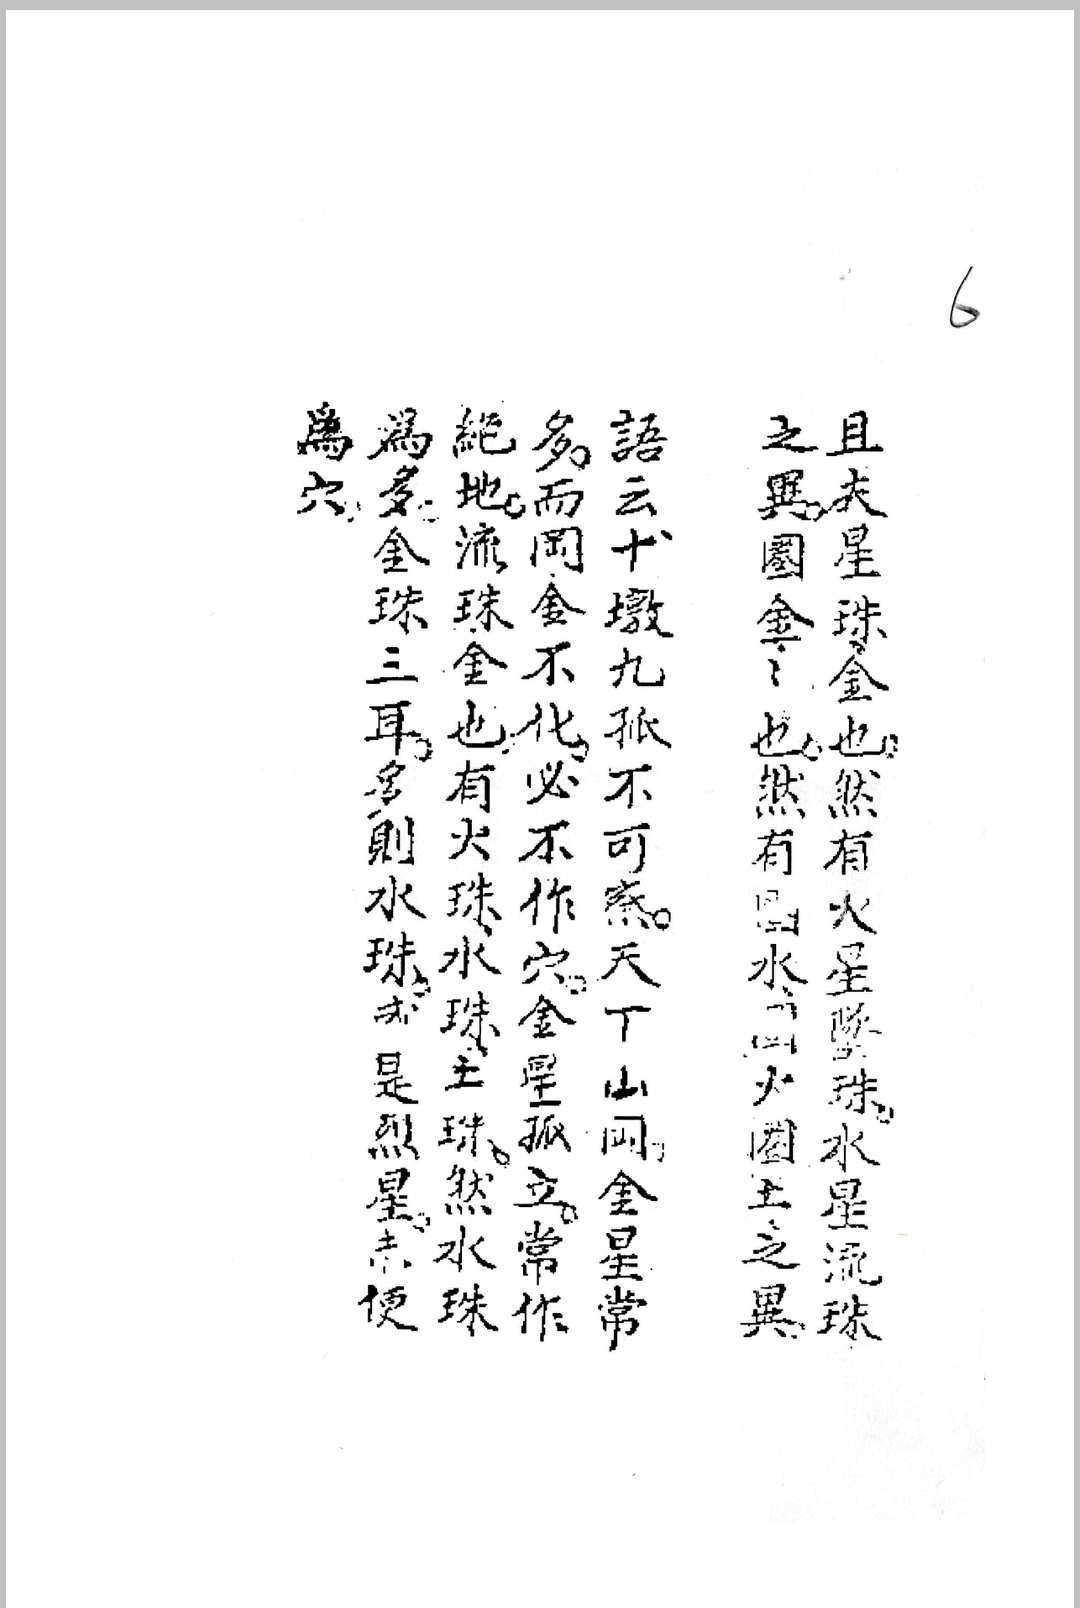 6
且夫星珠金也。然有火星墜珠。水星流珠
之異。圏金〻也。然有圏水圏火圏土之異。
語云十墩九孤不可察。天下山岡。金星常
多。而岡金不化。必不作穴。金星孤立。常作
絕地。流珠金也。有火珠水珠土珠。然水珠
為多。金珠三耳。多則水珠。亦是烈星。未便
爲穴。